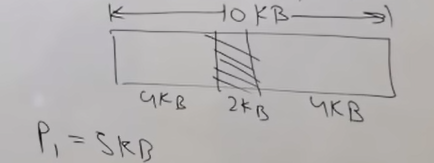 10 KB
4KB 2KB 4KB
P₁ = 5KB